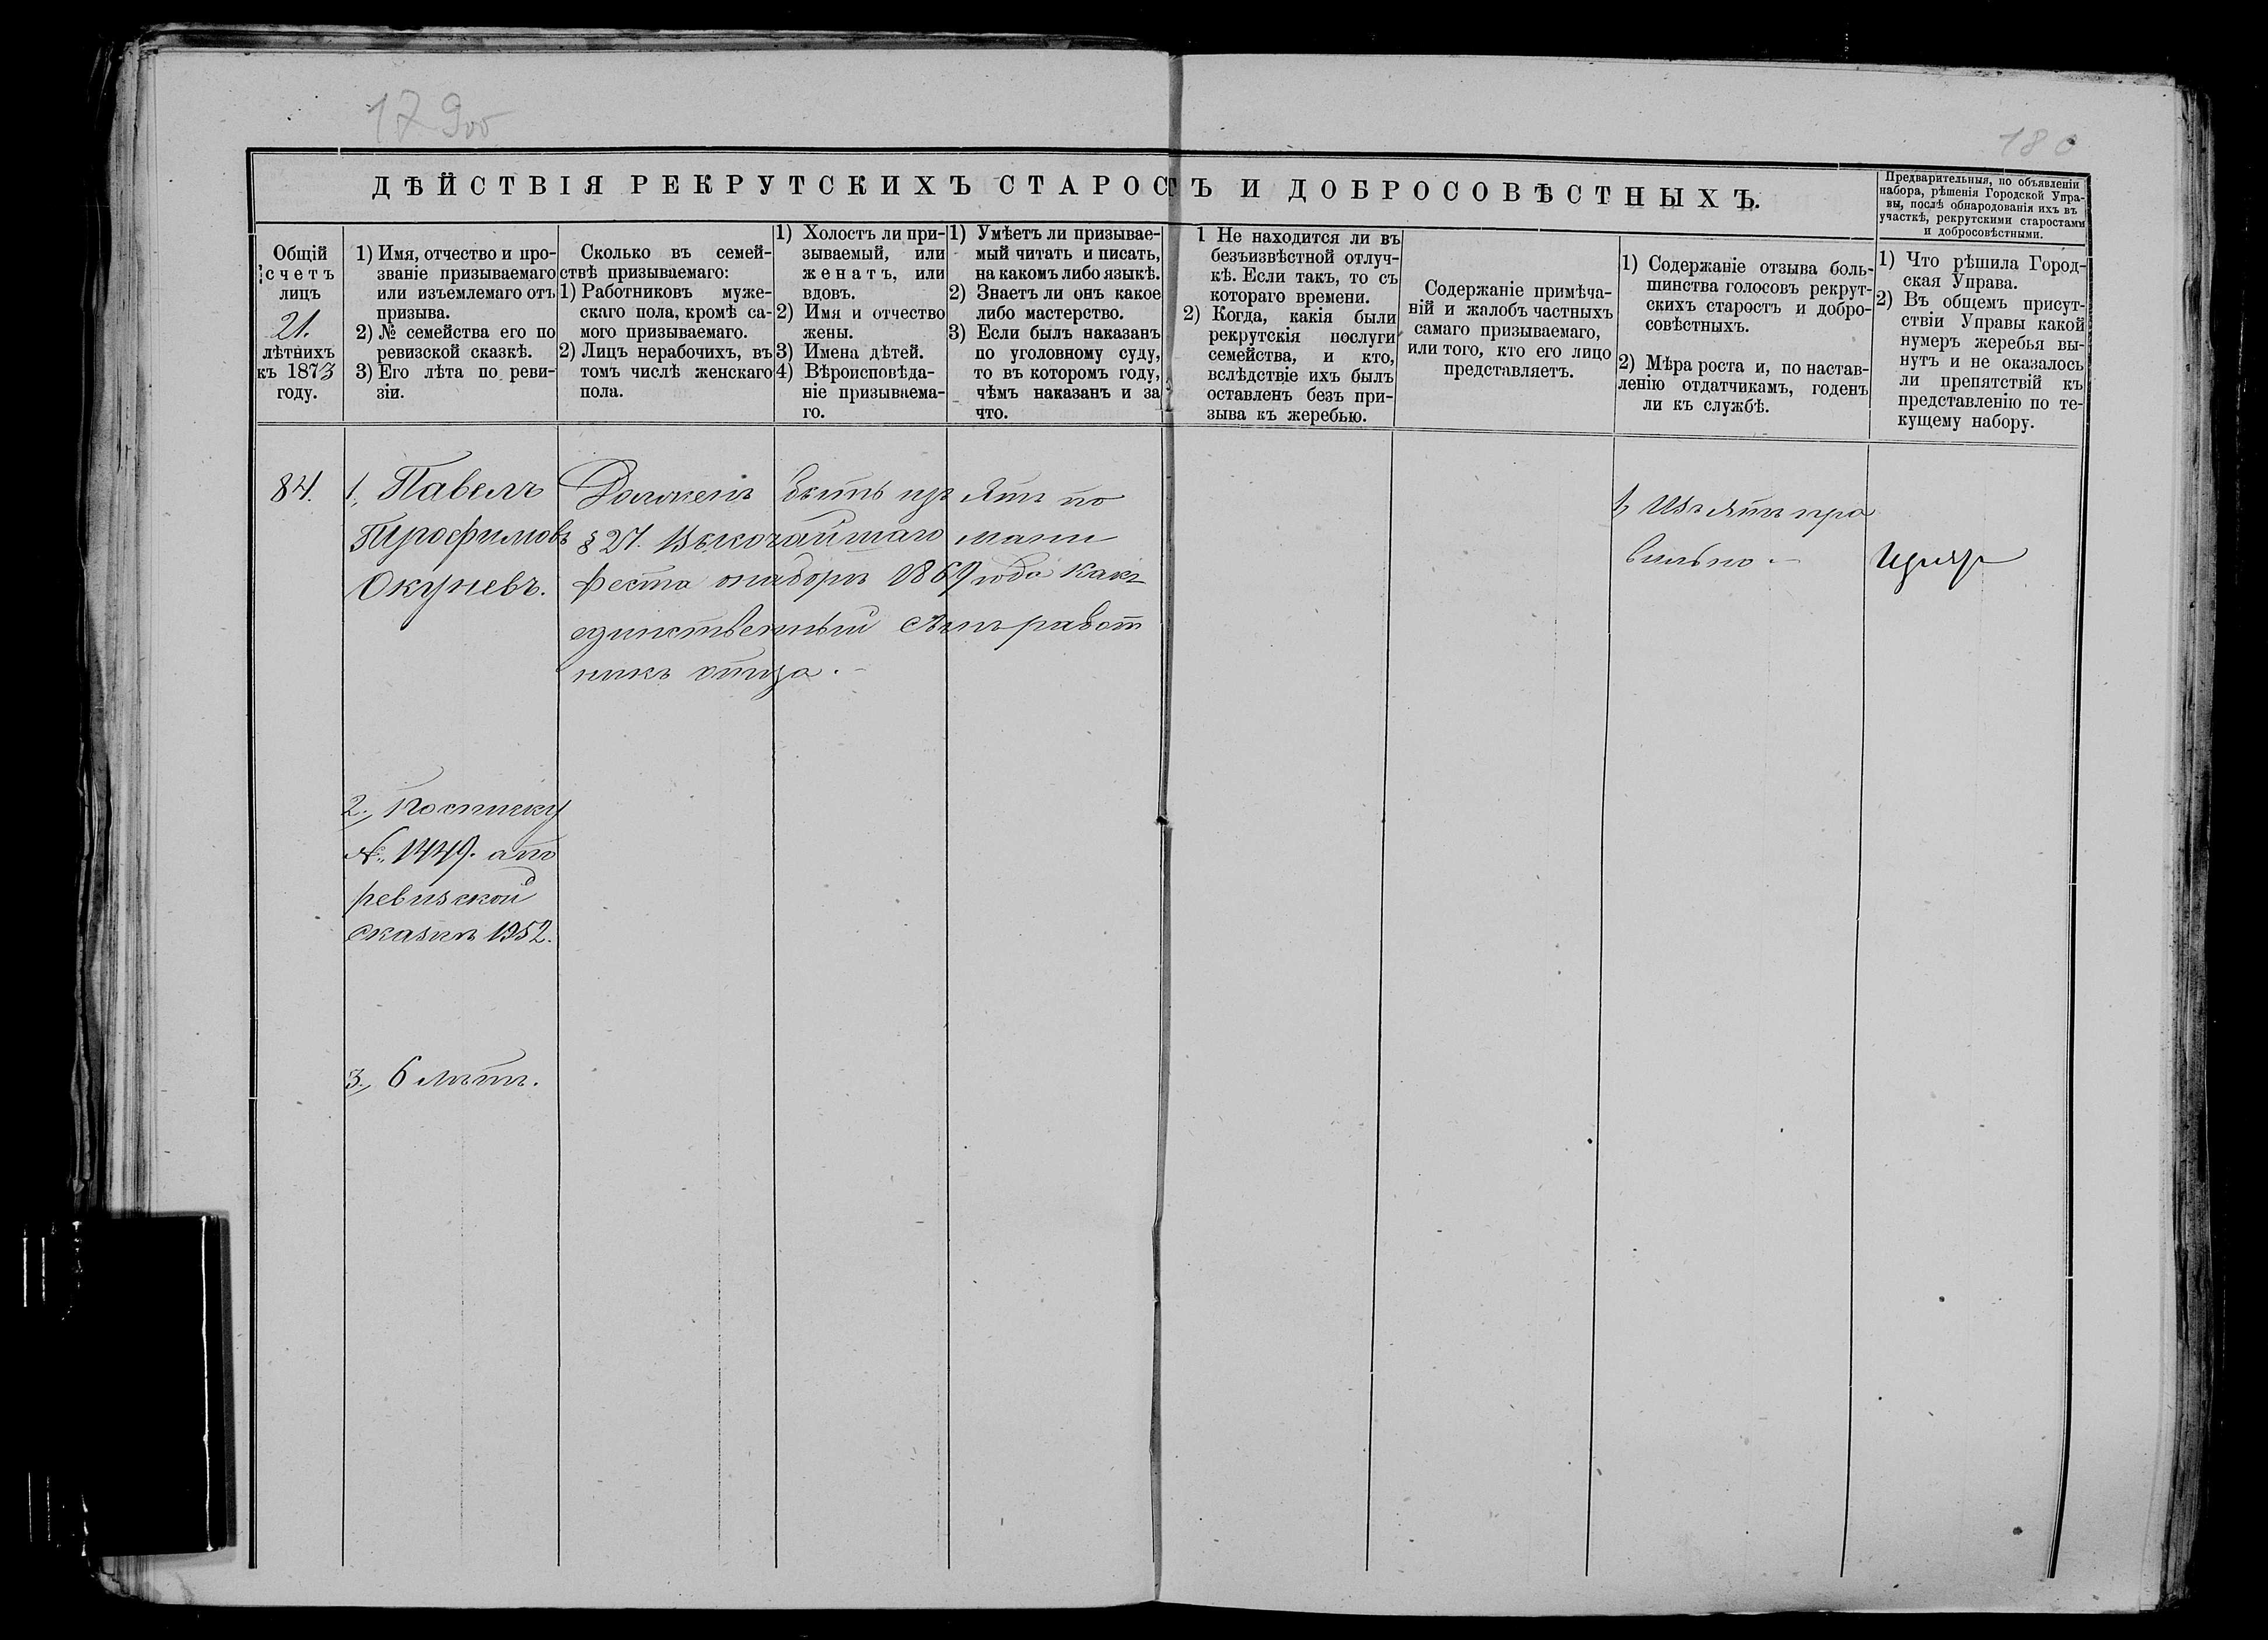 179об
180
ДѢЙСТВІЯ РЕКРУТСКИХЪ СТАРОСТЪ И ДОБРОСОВѢСТНЫХЪ.
Предварительныя, по объявленіи
набора, рѣшенія Городской Упра-
вы, послѣ обнародованія ихъ въ
участкѣ, рекрутскими старостами
и добросовѣстными.
Общій
счетъ
лицъ
21.
лѣтнихъ
къ 1873
году.
1) Имя, отчество и про-
званіе призываемаго
или изъемлемаго отъ
призыва.
2) № семейства его по
ревизской сказкѣ.
3) Его лѣта по реви-
зіи.
Сколько въ семей-
ствѣ призываемаго:
1) Работниковъ муже-
скаго пола, кромѣ са-
мого призываемаго.
2) Лицъ нерабочихъ, въ
томъ числѣ женскаго
пола.
1) Холостъ ли при-
зываемый, или
женатъ, или
вдовъ.
2) Имя и отчество
жены.
3) Имена дѣтей.
4) Вѣроисповѣда-
ніе призываема-
го.
1) Умѣетъ ли призывае-
мый читать и писать,
на какомъ либо языкѣ.
2) Знаетъ ли онъ какое
либо мастерство.
3) Если былъ наказанъ
по уголовному суду,
то въ которомъ году,
чѣмъ наказанъ и за
что.
1 Не находится ли въ
безъизвѣстной отлуч-
кѣ. Если такъ, то съ
котораго времени.
2) Когда, какія были
рекрутскія послуги
семейства, и кто,
вслѣдствіе ихъ былъ
оставленъ безъ при-
зыва къ жеребью.
Содержаніе примѣча-
ній и жалобъ частныхъ
самаго призываемаго,
или того, кто его лицо
представляетъ.
1) Содержаніе отзыва боль-
шинства голосовъ рекрут-
скихъ старостъ и добро-
совѣстныхъ.
2) Мѣра роста и, по настав-
ленію отдатчикамъ, годенъ
ли къ службѣ.
1) Что рѣшила Город-
ская Управа.
2) Въ общемъ присут-
ствіи Управы какой
нумеръ жеребья вы-
нутъ и не оказалось
ли препятствій къ
представленію по те-
кущему набору.
84.
1, Павелъ
Трофимовъ
Окуневъ.
2., По списку
№ 1449. а по
ревизской
сказкѣ 1952.
3., 6 лѣтъ.
Долженъ быть изъятъ по
§ 27. Высочайшаго мани
феста о наборѣ 1869 года какъ
единственный сынъ работ
никъ отца.
1, Изъятъ пра
вильно.